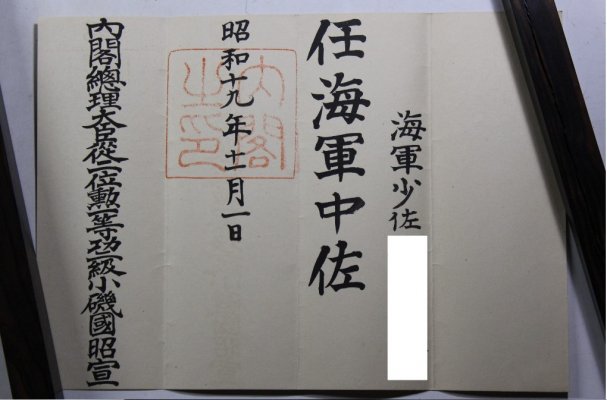 海軍少佐
任海軍中佐
昭和十九年十一月一日
内閣之印
內閣總理大臣從二位勳一等功二級小磯國昭宣